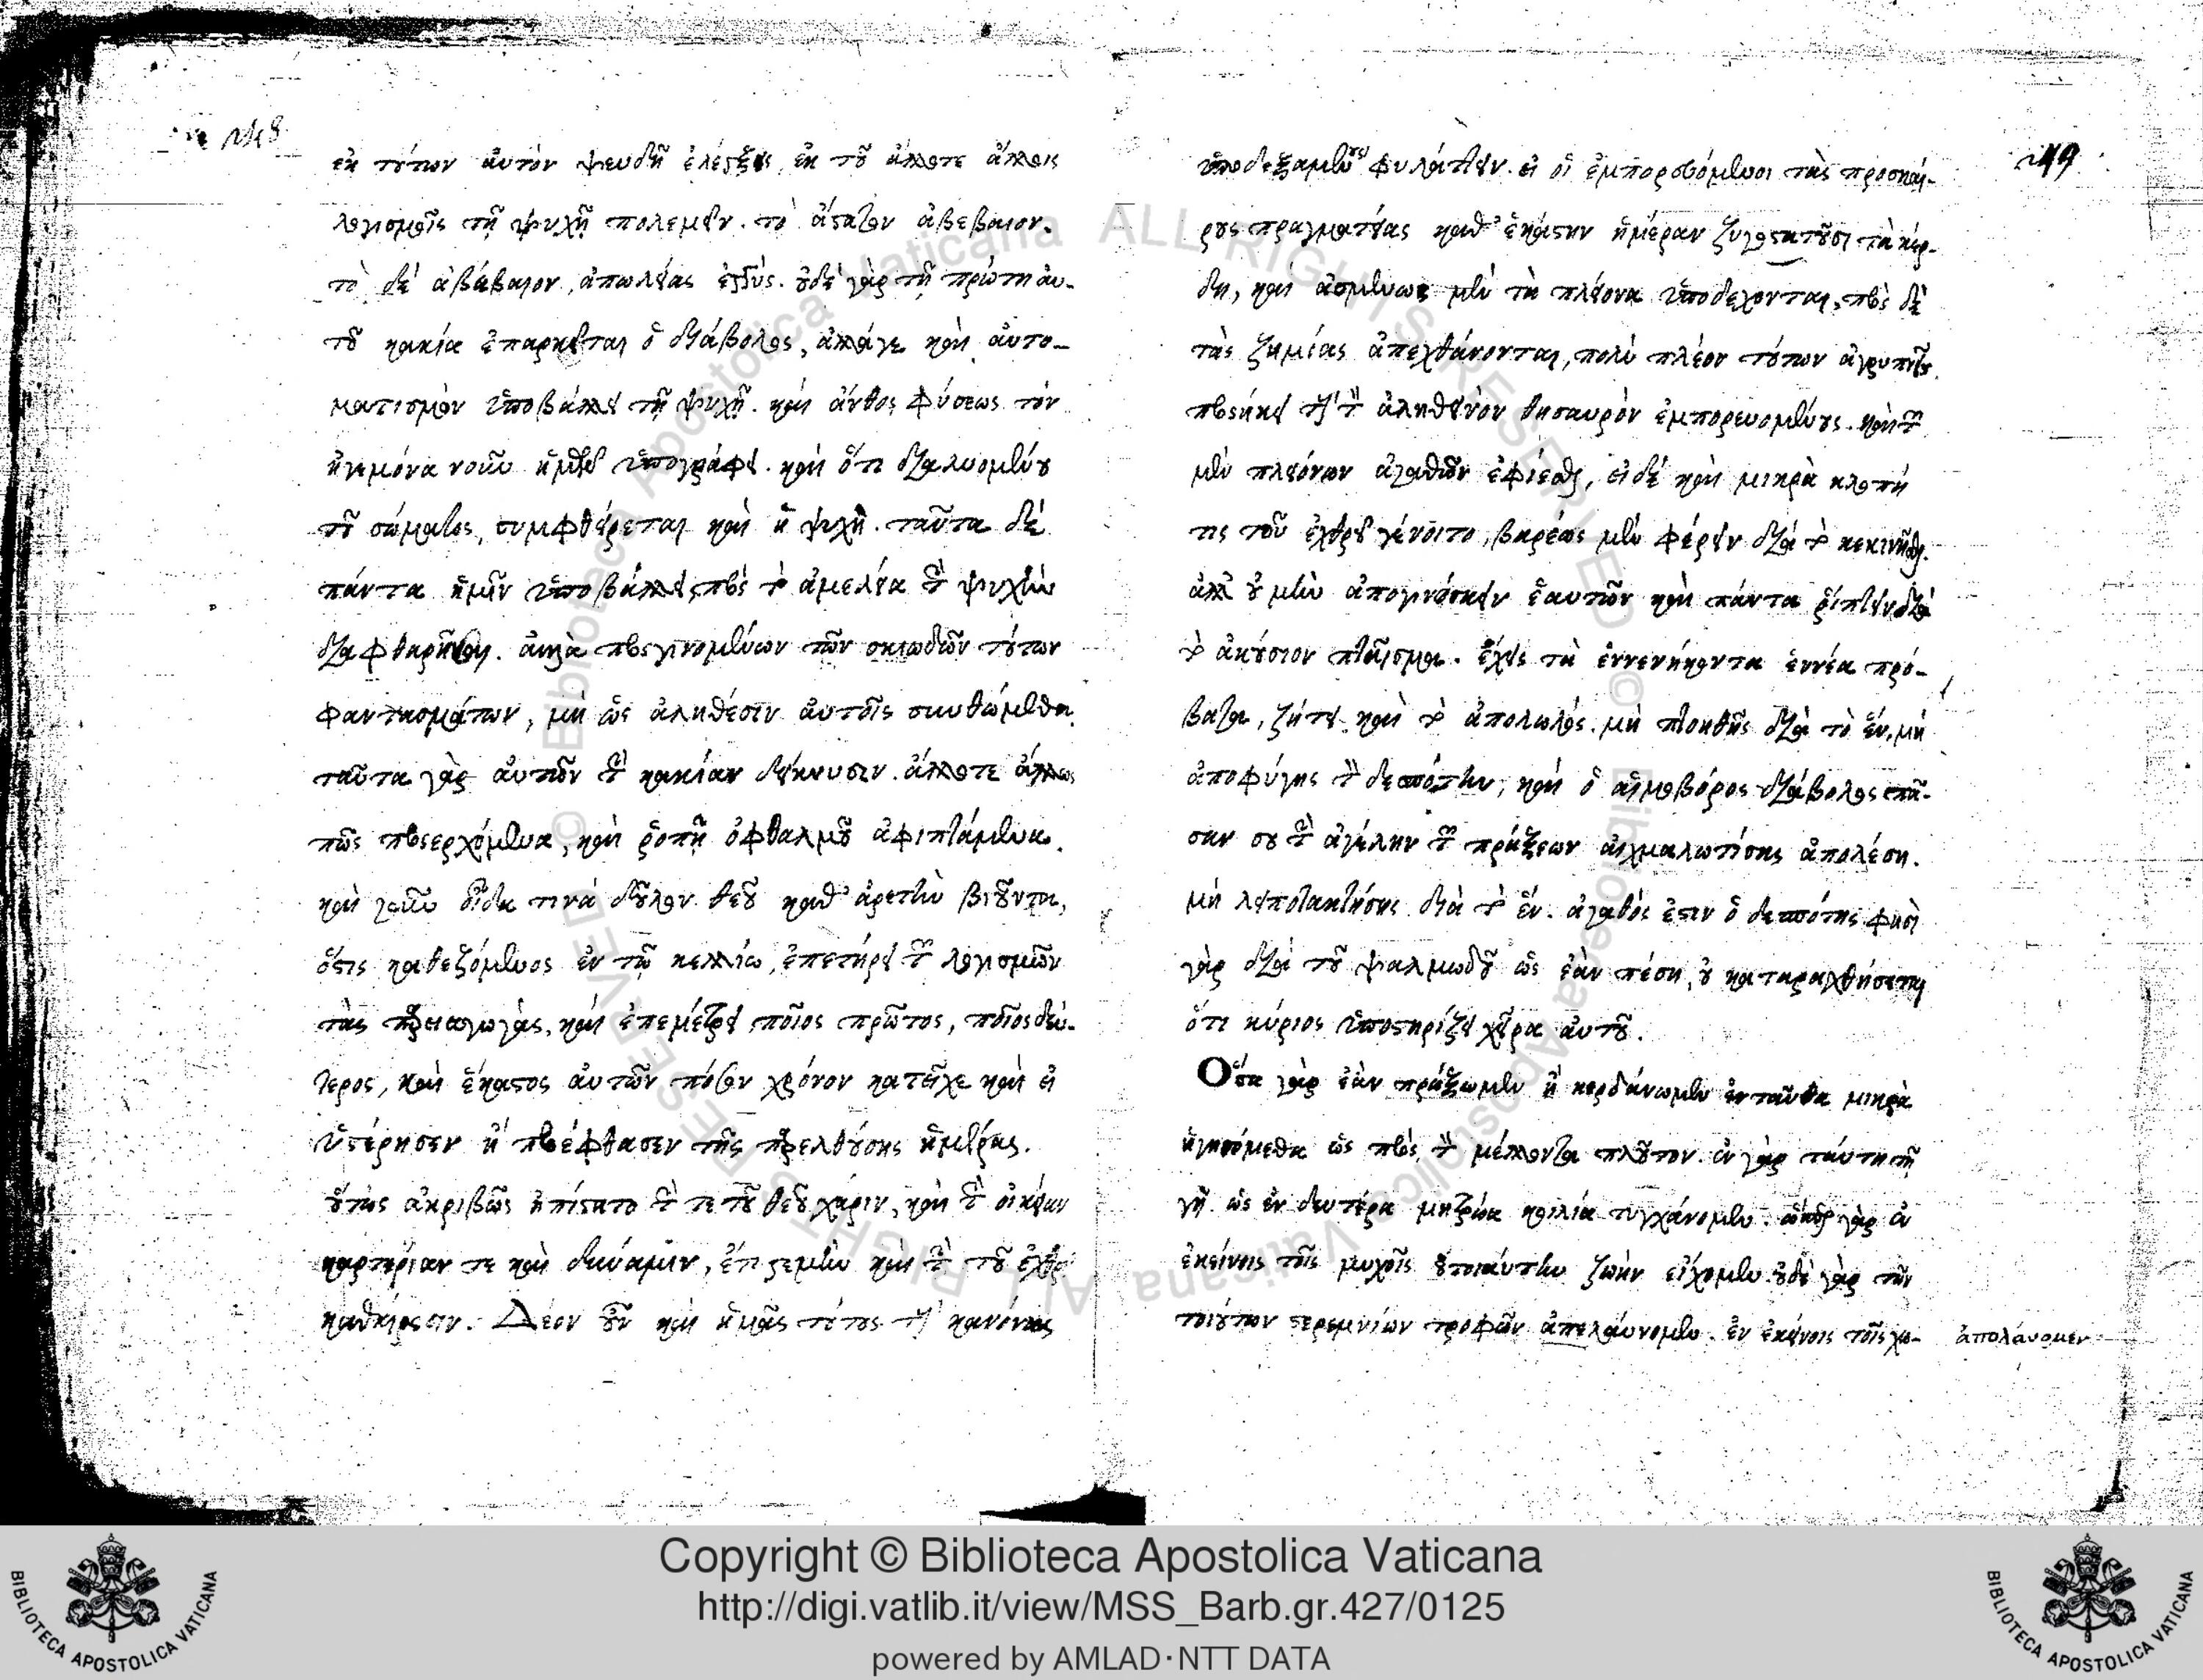 248
ἐκ τούτων αὐτὸν ψευδῆ ἐλέγξεις, ἐκ τοῦ ἄλλοτε ἄλλοις
λογισμοῖς τῇ ψυχῇ πολεμεῖν. τὸ ἄστατον ἀβέβαιον.
τὸ δὲ ἀβέβαιον, ἀπωλείας ἐγγύς. οὐδὲ γὰρ τῇ πρώτῃ αὐ-
τοῦ κακίᾳ ἐπαρκεῖται ὁ διάβολος, ἀλλάγε καὶ αὐτο-
ματισμὸν ὑποβάλλει τῇ ψυχῇ. καὶ ἄνθος φύσεως τὸν
ἡγεμόνα νοῦν ἡμῶν ὑπογράφει. καὶ ὅτι διαλυομένου
τοῦ σώματος, συμφθείρεται καὶ ἡ ψυχή. ταῦτα δὲ
πάντα ἡμῖν ὑποβάλλει πρὸς τὸ ἀμελείᾳ τὴν ψυχὴν
διαφθαρῆναι. ἀλλὰ προσγινομένων τῶν σκιωδῶν τούτων
φαντασμάτων, μὴ ὡς ἀληθέσιν αὐτοῖς συνθώμεθα.
ταῦτα γὰρ αὐτῶν τὴν κακίαν δείκνυσιν. ἄλλοτε ἄλλως
πῶς προσερχόμενα, καὶ ῥοπῇ ὀφθαλμοῦ ἀφιπτάμενα.
καὶ γοῦν οἶδα τινὰ δοῦλον θεοῦ κατ' ἀρετὴν βιοῦντα,
ὅστις καθεζόμενος ἐν τῷ κελλίῳ, ἐπετήρει τῶν λογισμῶν
τὰς παρεισαγωγὰς, καὶ ἐπεμέτρει ποῖος πρῶτος, ποῖος δεύ-
τερος, καὶ ἕκαστος αὐτῶν πόσον χρόνον κατεῖχε καὶ εἰ
ὑστέρησεν ἢ προέφθασεν τῆς παρελθούσης ἡμέρας.
οὕτως ἀκριβῶς ἠπίστατο τήν τε τοῦ θεοῦ χάριν, καὶ τὴν οἰκείαν
καρτερίαν τε καὶ δύναμιν, ἔτι γεμὴν καὶ τὴν τοῦ ἐχθροῦ
καθαίρεσιν. Δέον οὖν καὶ ἡμᾶς τούτους τοὺς κανόνας
249
ὑποδεξαμένους φυλάττειν. εἰ οἱ ἐμπορευόμενοι τὰς προσκαί-
ρους πραγματείας καθ' ἑκάστην ἡμέραν ζυγοστατοῦσι τὰ κέρ-
δη, καὶ ἀσμένως μὲν τὰ πλείονα ὑποδέχονται, πρὸς δὲ
τὰς ζημίας ἀπεχθάνονται, πολὺ πλέον τούτων ἀγρυπνεῖν
προσήκει τοὺς τὸν ἀληθινὸν θησαυρὸν ἐμπορευομένους. καὶ τῶν
μὲν πλειόνων ἀγαθῶν ἐφίεσθαι, εἰ δέ καὶ μικρὰ κλοπή
τις τοῦ ἐχθροῦ γένοιτο, βαρέως μὲν φέρειν διὰ τὸ κεκινῆσθαι.
ἀλλ' οὐ μὴν ἀπογινώσκειν ἑαυτῶν καὶ πάντα ῥίπτειν διὰ
τὸ ἀκούσιον πταῖσμα. ἔχεις τὰ ἐννενήκοντα ἐννέα πρό-
βατα, ζήτει καὶ τὸ ἀπολωλός. μὴ πτοηθῇς διὰ τὸ ἕν, μὴ
ἀποφύγῃς τὸν δεσπότην, καὶ ὁ αἱμοβόρος διάβολος πᾶ-
σαν σου τὴν ἀγέλην τῶν πράξεων αἰχμαλωτίσας ἀπολέσῃ.
μὴ λειποτακτήσῃς διὰ τὸ ἕν. ἀγαθός ἐστιν ὁ δεσπότης φησὶ
γὰρ διὰ τοῦ ψαλμωδοῦ ὡς ἐὰν πέσῃ, οὐ καταραχθήσεται
ὅτι κύριος ὑποστηρίζει χεῖρα αὐτοῦ.
Ὅσα γὰρ ἐὰν πράξωμεν ἢ κερδάνωμεν ἐνταῦθα μικρὰ
ἡγησόμεθα ὡς πρὸς τὸν μέλλοντα πλοῦτον. ἐν γὰρ ταύτῃ τῇ
γῇ ὡς ἐν δευτέρᾳ μητρώᾳ κοιλίᾳ τυγχάνομεν. ὥσπερ γὰρ ἐν
ἐκείνοις τοῖς μυχοῖς οὐ τοιαύτην ζωὴν εἴχομεν. οὐδὲ γὰρ τῶν
τοιούτων στερεμνίων τροφῶν ἀπελαύνομεν. ἐν ἐκείνοις τοῖς χω-
ἀπολάυομεν
Copyright © Biblioteca Apostolica Vaticana
http://digi.vatlib.it/view/MSS_Barb.gr.427/0125
powered by AMLAD·NTT DATA
BIBLIOTECA APOSTOLICA VATICANA
BIBLIOTECA APOSTOLICA VATICANA